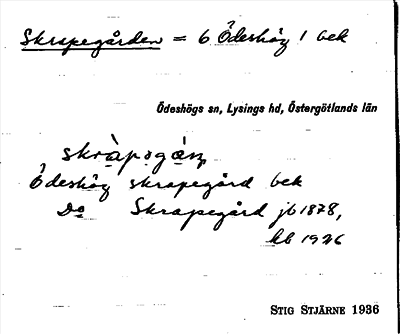 Skrapegården = 6 Ödeshög 1 bek
Ödeshögs sn, Lysings hd, Östergötlands län
skràpəgán
Ödeshög skrapegård bek
Do Skrapegård jb 1878,
kb 1926
STIG STJÄRNE 1936